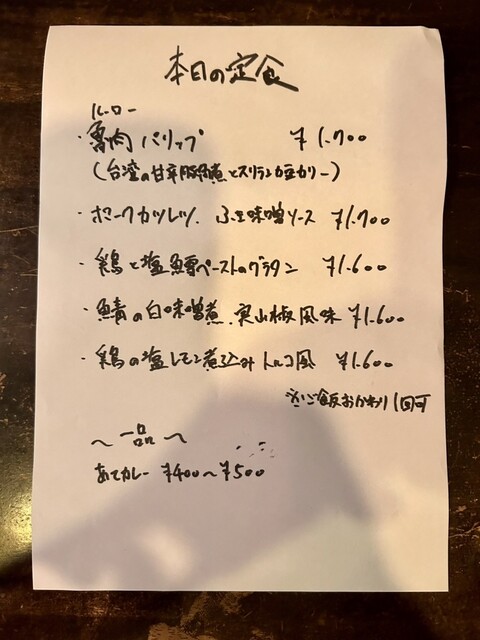 本日の定食
ルーロー
・魯肉パリップ ¥1.700
(台湾の甘辛豚角煮とスリランカ豆カリー)
・ポークカツレツ ふき味噌ソース ¥1.700
・鶏と塩鱈ペーストのグラタン ¥1.600
・鯖の白味噌煮 実山椒風味 ¥1.600
・鶏の塩レモン煮込み トルコ風 ¥1.600
※ご飯おかわり1回可
〜一品〜
あてカレー ¥400〜¥500